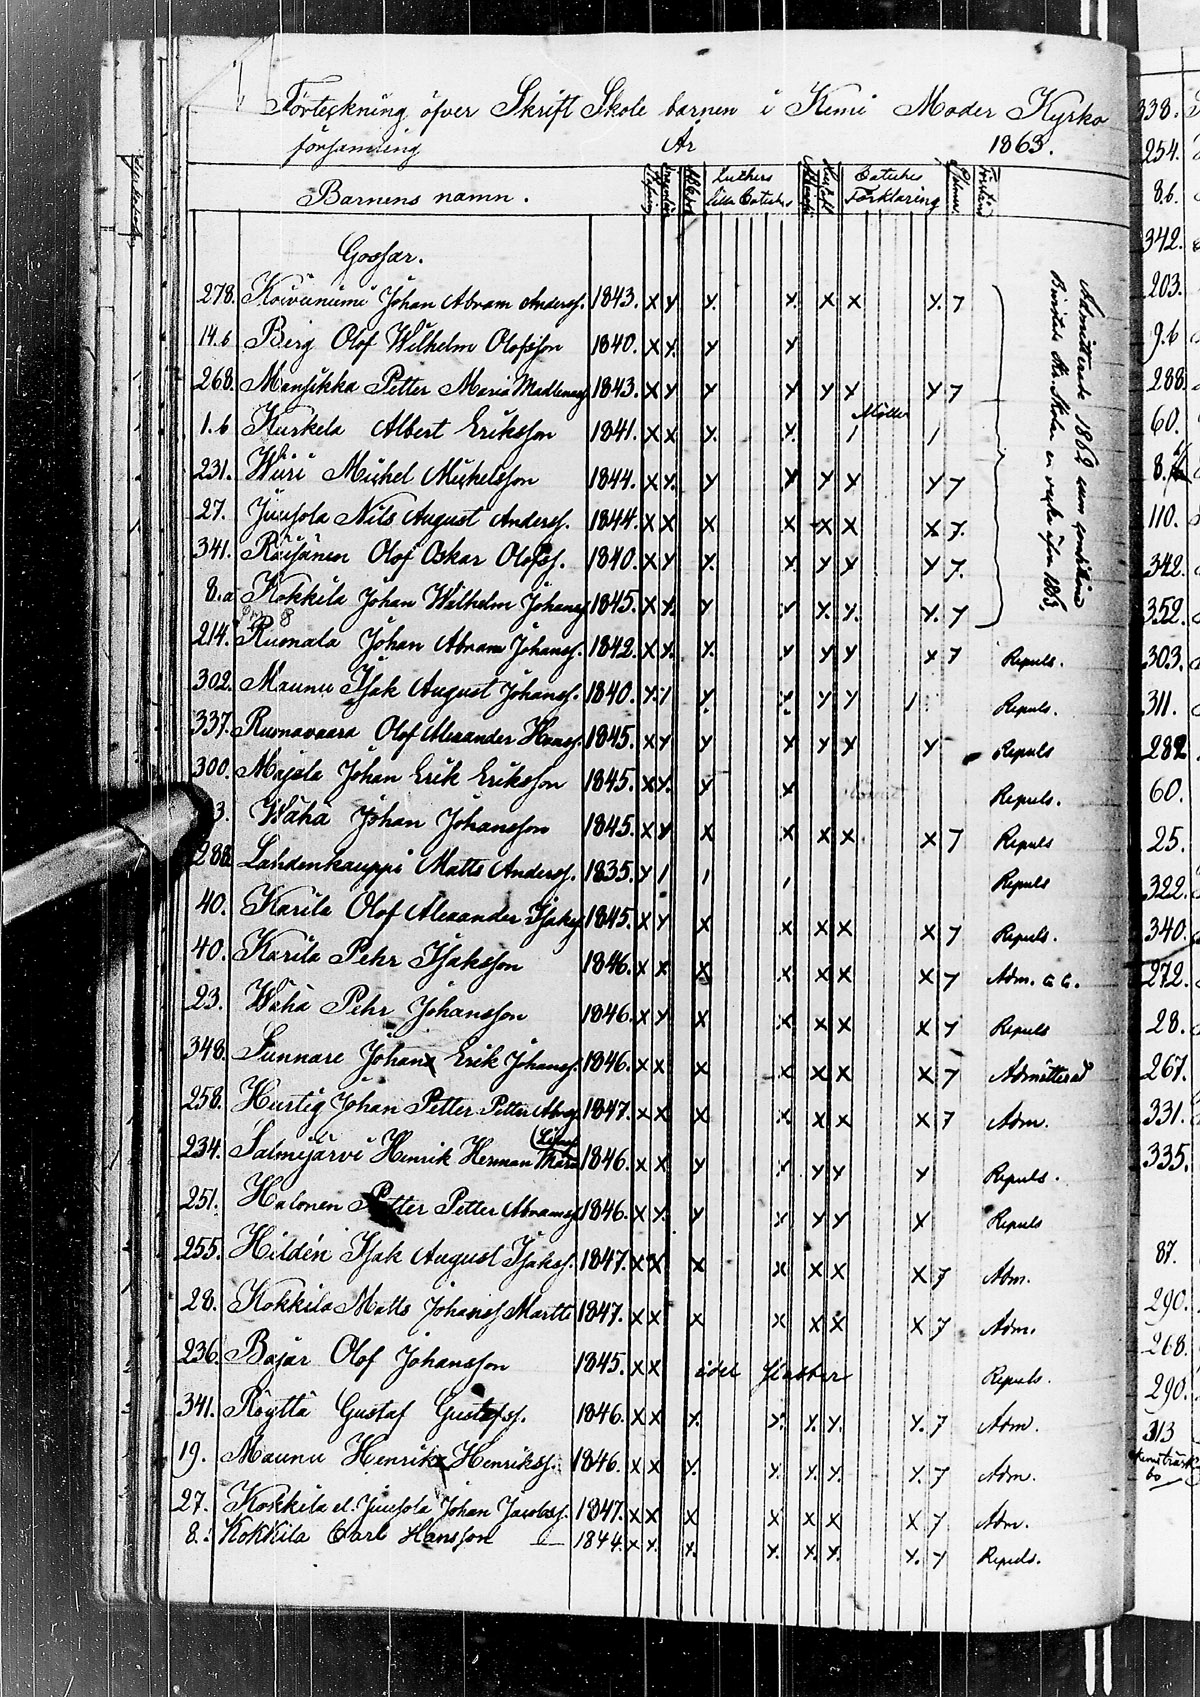 Förteckning öfver Skrift Skole barnen i Kemi Moder Kyrko
församling År 1863.
Barnens namn. Luthers lilla Catches Catches Förklaring
Gossar.
278. Koivuniemi Johan Abram Anderss. 1843. x y y. y. x x y. 7
14.b Berg Olof Wilhelm Olofsson 1840. x y. y y
268. Mansikka Petter Maria Madlenas 1843. x y y y. y y y 7
1.b Kurkela Albert Eriksson 1841. x x y. x. / /
231. Wiiri Michel Michelsson 1844. x y. y y y y y 7
27. Juusola Nils August Anderss. 1844. x x x x x x x 7.
341. Räisänen Olof Oskar Olofss. 1840. x y. y. y. y y y 7.
8.a Kokkila Johan Wilhelm Johanss 1845. x y. y y x y. y. 7
Admitterade 1862 men
214. Ruonala Johan Abram Johanss. 1842. x y. y. y y y y 7 Repuls.
302. Maunu Isak August Johanss. 1840. y / y. y. y y / Repuls.
337. Ruonavaara Olof Alexander Hanss. 1845. x y y y y y y Repuls
300. Majala Johan Erik Eriksson 1845. x y. y y Repuls.
3. Wähä Johan Johansson 1845. x y x x x x x 7 Repuls
288. Lahdenkauppi Matts Anderss. 1835. y / / / Repuls
40. Karila Olof Alexander Isakss 1845. x y x x x x x 7 Repuls.
40. Karila Pehr Isaksson 1846. x x x x x x x 7 Adm. G G.
23. Wähä Pehr Johansson 1846. x y x x x x x 7 Repuls
348. Sunnare Johan Erik Johanss. 1846. x x x x x x x 7 Admitterad
258. Hurtig Johan Petter Petter Abrss 1847. x x x x x x x 7 Adm.
234. Salmijärvi Henrik Herman 1846. x x y y y y y Repuls.
251. Halonen Petter Petter Abramss 1846. x y. y y y y x Repuls
255. Hildén Isak August Isakss. 1847. x x x x x x x 7 Adm.
28. Kokkila Matts Johanss Martti 1847. x x x x x x x 7 Adm.
236. Bajar Olof Johansson 1845. x x idel Repuls.
341. Röyttä Gustaf Gustafss. 1846. x x y. y. y. y. y. 7 Adm.
19. Maunu Henrik Henrikss. 1846. x x y. y. y. y. y. 7 Adm.
27. Kokkila el. Juusola Johan Jacobss. 1847. x x x x x x x 7 Adm.
8. Kokkila Carl Hansson 1844. x y. y. y. y. y. y. 7 Repuls.
338.
254.
86.
342.
203.
96
288
60.
110.
342.
352.
303.
311.
282
60.
25.
322.
340.
272.
28.
267.
331.
335.
87.
290.
268.
290.
313
60